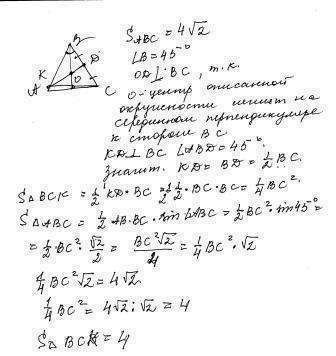 B
K
D
O
A
C
S_ABC = 4√2
∠B = 45°
OD ⊥ BC, т.к.
O-центр описанной
окружности лежит на
серединном перпендикуляре
к стороне BC
KD ⊥ BC ∠ABD = 45°
значит. KD = BD = 1/2 BC.
S△BCK = 1/2 KD · BC = 1/2 · 1/2 · BC · BC = 1/4 BC².
S△ABC = 1/2 AB · BC · sin∠ABC = 1/2 BC² · sin45° =
= 1/2 BC² · √2/2 = BC²√2/4 = 1/4 BC² · √2
1/4 BC²√2 = 4√2.
1/4 BC² = 4√2 : √2 = 4
S△BCK = 4